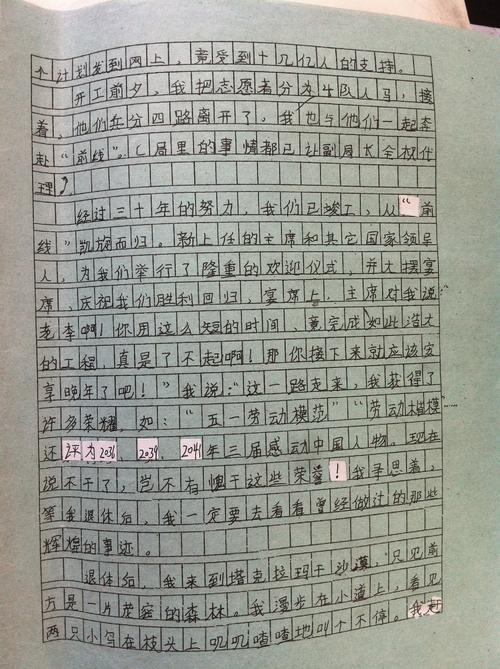 个计划发到网上，竟受到十几亿人的支持。
开工前夕，我把志愿者分为4队人马，接
着，他们兵分四路离开了。我也与他们一起奔
赴“前线”。（局里的事情都已让副局长全权代
理）
经过三十年的努力，我们已竣工，从“前
线”凯旋而归。新上任的主席和其它国家领导
人，为我们举行了隆重的欢迎仪式，并大摆宴
席，庆祝我们胜利回归，宴席上，主席对我说：“
老李啊！你用这么短的时间，竟完成如此浩大
的工程，真是了不起啊！那你接下来就应该安
享晚年了吧！”我说：“这一路走来，我获得了
许多荣耀，如：“五一劳动模范”“劳动楷模”……
还评为2036 2039、2041年三届感动中国人物。现在
说不干了，岂不有愧于这些荣誉！我寻思着，
等我退休后，我一定要去看看曾经做过的那些
辉煌的事迹。
退休后，我来到塔克拉玛干沙漠，只见前
方是一片茂密的森林。我漫步在小道上，看见
两只小鸟在枝头上叽叽喳喳地叫个不停。我赶